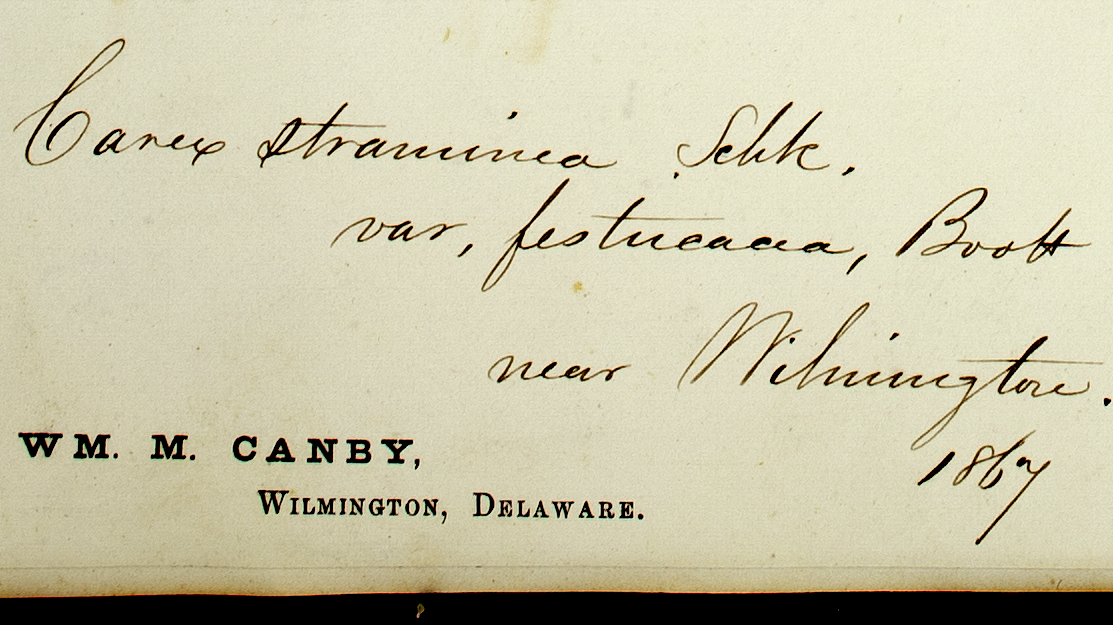 Carex straminea Schk.
var, festucacea, Boott
near Wilmington.
1867
WM. M. CANBY,
WILMINGTON, DELAWARE.